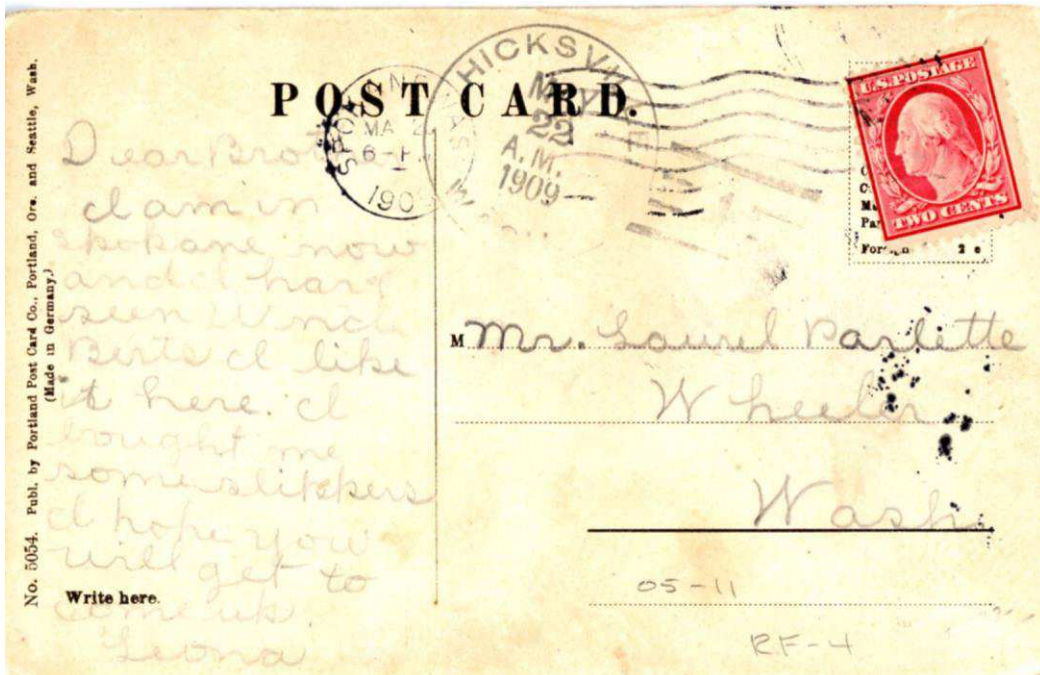 POST CARD.
No. 5054. Publ. by Portland Post Card Co., Portland, Ore. and Seattle, Wash.
(Made in Germany.)
SPOKANE
MA
6-
190
HICKSVILLE
MAY
22
A.M.
1909
WASH
U.S. POSTAGE
TWO CENTS
2 c
Dear Bro
I am in
Spokane now
and I have
seen Uncle
Berts I like
it here. I
bought me
some slippers
I hope you
will get to
come up.
Leona
Write here.
M Mr. Laurel Parlette
Wheeler
Wash.
05-11
RF-4